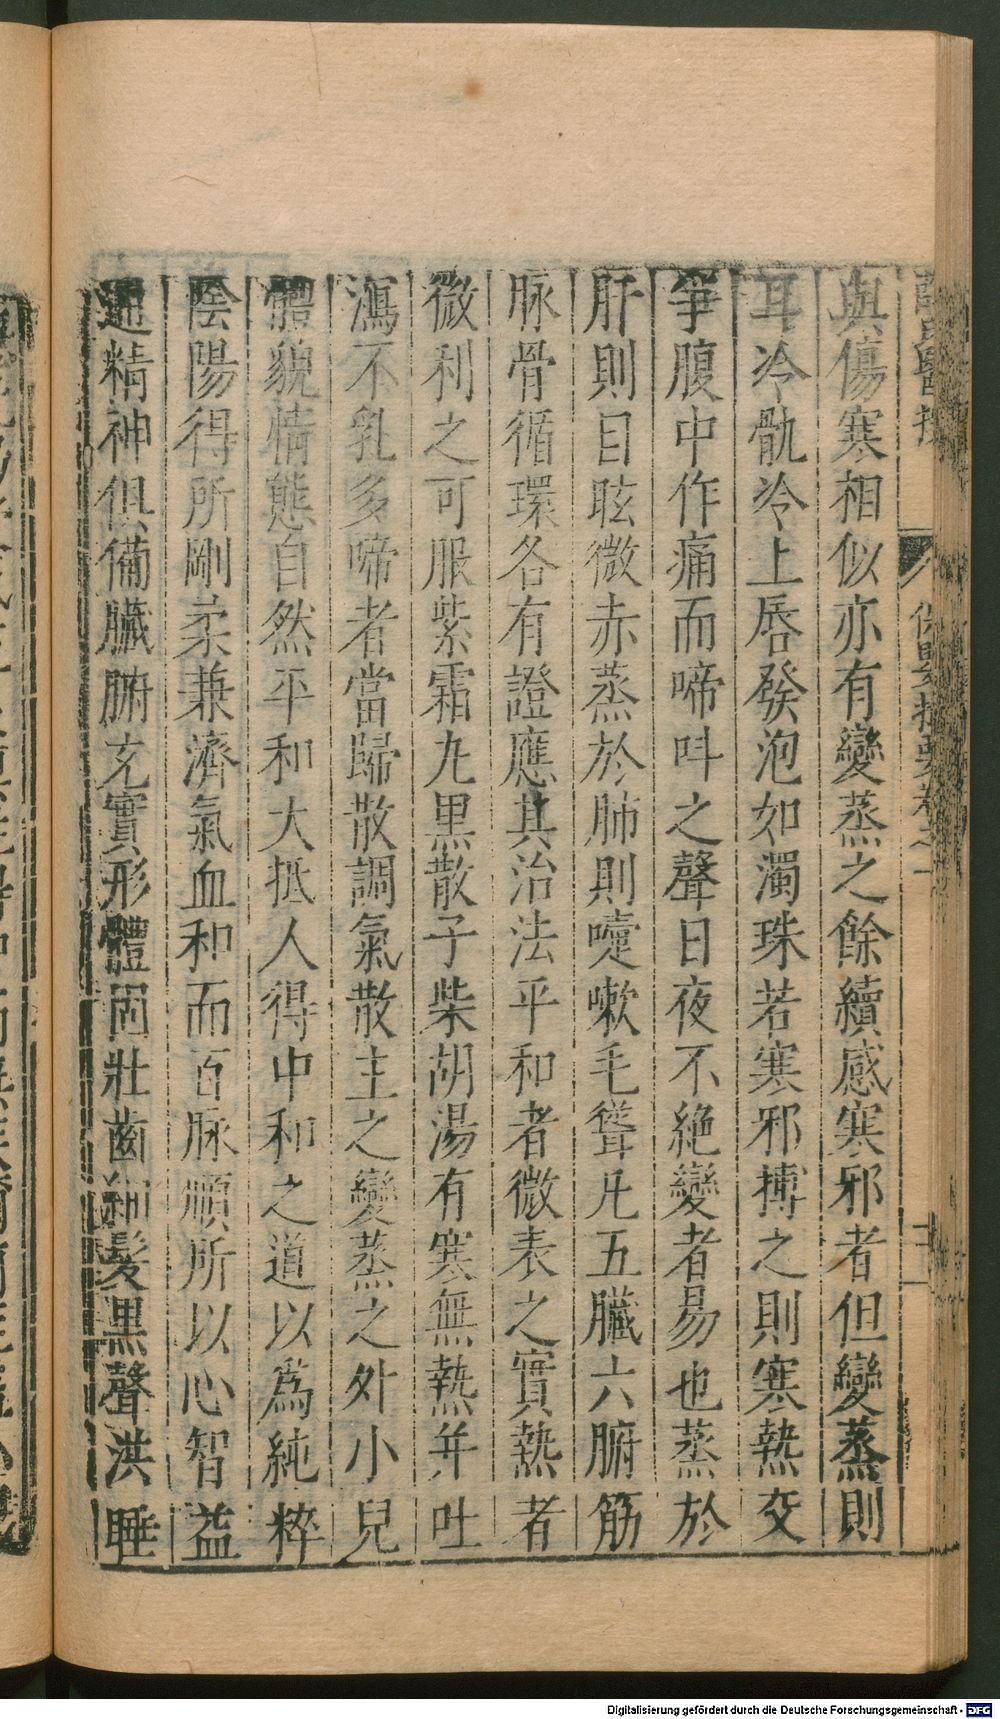 薛氏醫按　保嬰撮要卷之一
與傷寒相似亦有變蒸之餘續感寒邪者但變蒸則
耳冷骩冷上唇發泡如濁珠若寒邪搏之則寒熱交
爭腹中作痛而啼呌之聲日夜不絕變者易也蒸於
肝則目眩微赤蒸於肺則嚏嗽毛聳凡五臟六腑筋
脉骨循環各有證應其治法平和者微表之實熱者
微利之可服紫霜丸黑散子柴胡湯有寒無熱并吐
瀉不乳多啼者當歸散調氣散主之變蒸之外小兒
體貌情態自然平和大抵人得中和之道以爲純粹
陰陽得所剛柔兼濟氣血和而百脉順所以心智益
通精神俱備臟腑充實形體固壯齒細髮黑聲洪睡
Digitalisierung gefördert durch die Deutsche Forschungsgemeinschaft - DFG